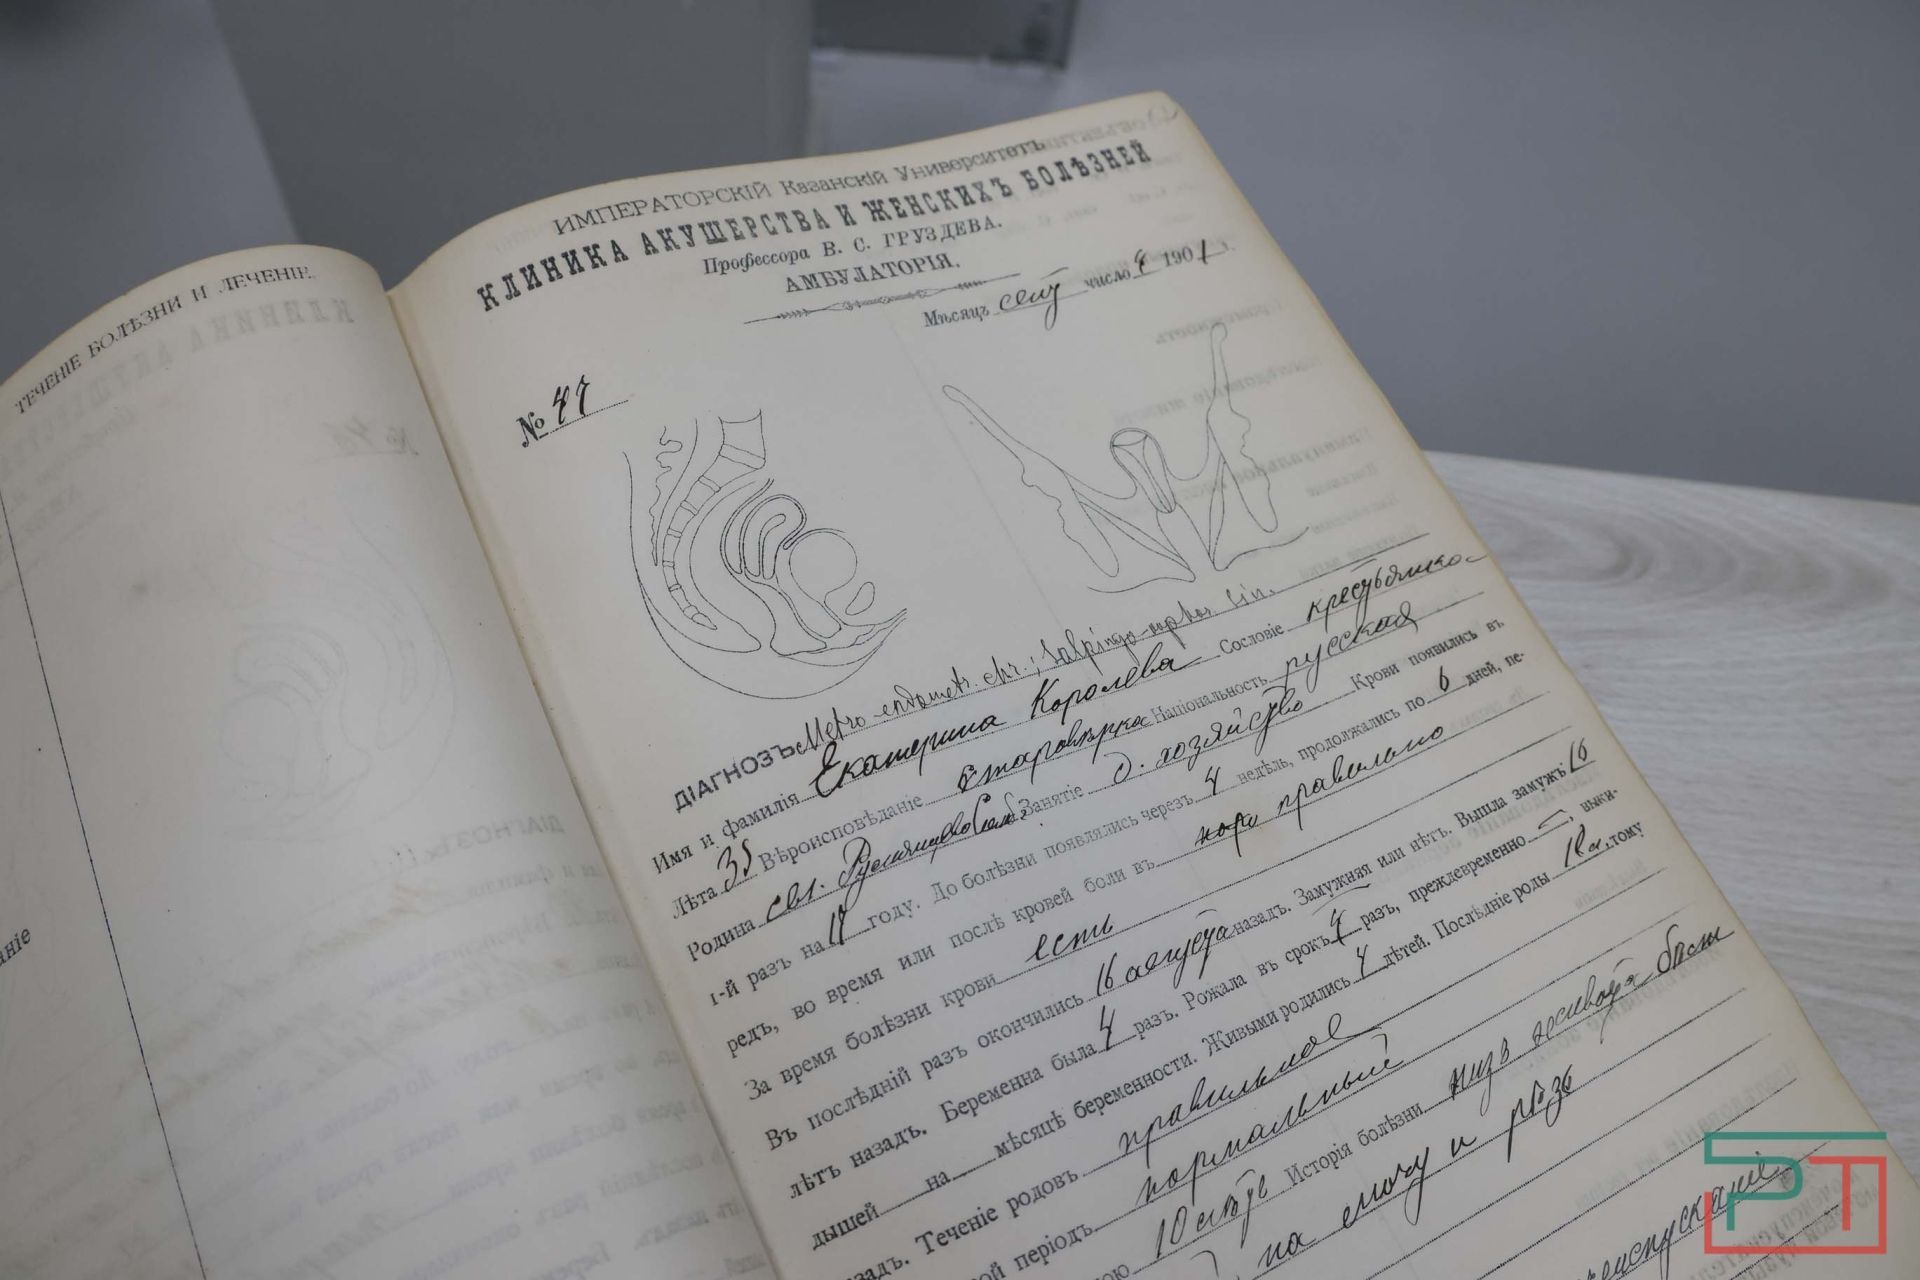 ТЕЧЕНІЕ БОЛѢЗНИ И ЛЕЧЕНІЕ.
ИМПЕРАТОРСКІЙ Казанскій Университетъ
КЛИНИКА АКУШЕРСТВА И ЖЕНСКИХЪ БОЛѢЗНЕЙ
Профессора В. С. ГРУЗДЕВА.
АМБУЛАТОРІЯ.
Мѣсяцъ сент число 1901 г.
№ 47
ДІАГНОЗЪ Metro-endometr. chr.; Salpingo-oophor. sin.
Имя и фамилія Екатерина Королева Сословіе крестьянка
Лѣта 35 Вѣроисповѣданіе старовѣрка Національность русская
Родина Занятіе д. хозяйство Крови появились въ
1-й разъ на 17 году. До болѣзни появлялись черезъ 4 недѣль, продолжались по 6 дней, пе-
редъ, во время или послѣ кровей боли въ правильно
За время болѣзни крови есть
Въ послѣдній разъ окончились 16 августа назадъ. Замужняя или нѣтъ. Вышла замужъ 16
лѣтъ назадъ. Беременна была 4 разъ. Рожала въ срокъ 4 разъ, преждевременно —, выки-
дышей на мѣсяцѣ беременности. Живыми родились 4 дѣтей. Послѣдніе роды тому
задъ. Теченіе родовъ правильное
ой періодъ нормальный
ою Исторія болѣзни низъ живота боли
на мочу и рѣзь
РТ